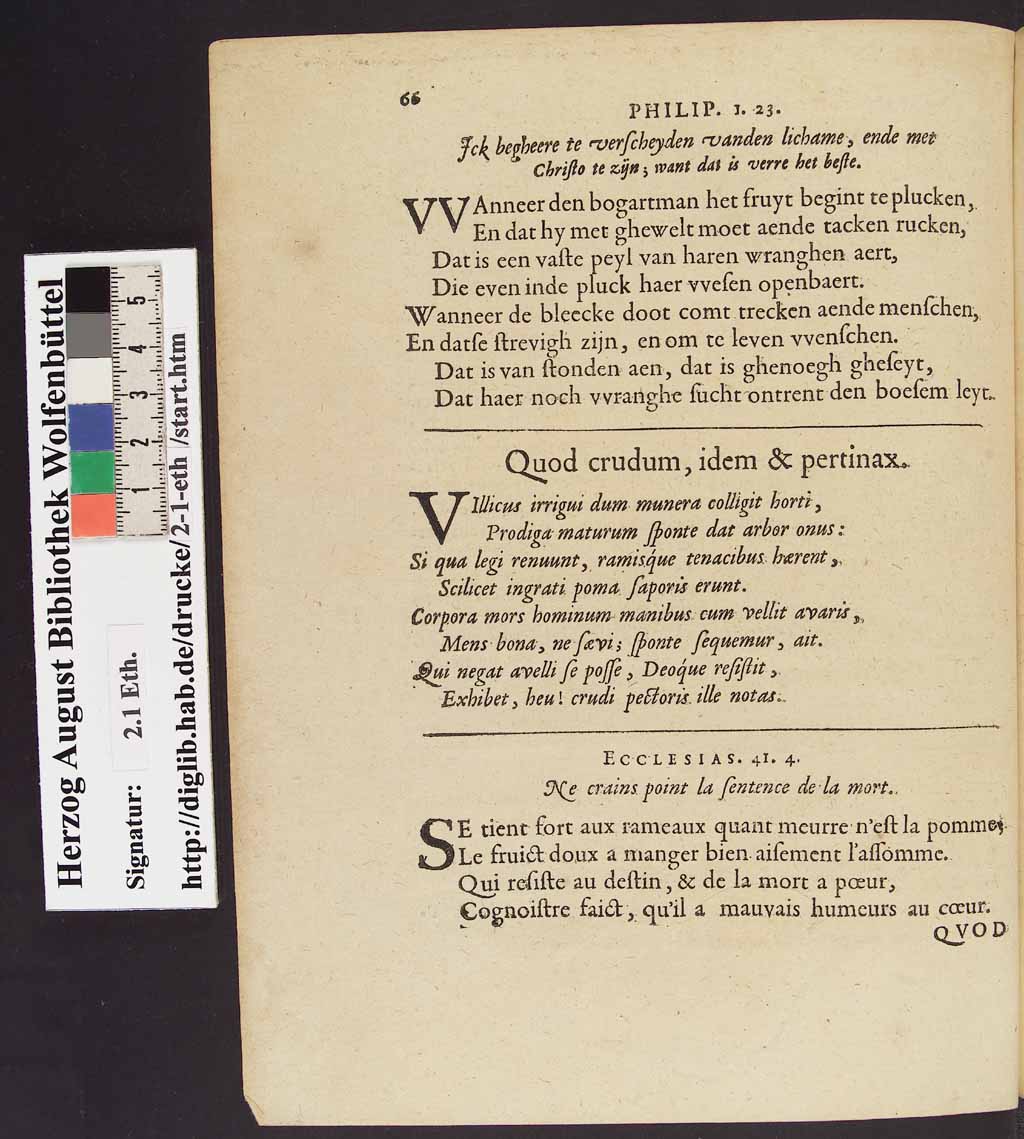 66
PHILIP. 1. 23.
Ick begheere te verſcheyden vanden lichame, ende met
Chriſto te zijn; want dat is verre het beſte.
VVAnneer den bogartman het fruyt begint te plucken,
En dat hy met ghewelt moet aende tacken rucken,
Dat is een vaſte peyl van haren wranghen aert,
Die even inde pluck haer vveſen openbaert.
Wanneer de bleecke doot comt trecken aende menſchen,
En datſe ſtrevigh zijn, en om te leven vvenſchen.
Dat is van ſtonden aen, dat is ghenoegh gheſeyt,
Dat haer noch vvranghe ſucht ontrent den boeſem leyt.
Quod crudum, idem & pertinax.
VIllicus irrigui dum munera colligit horti,
Prodiga maturum ſponte dat arbor onus:
Si qua legi renuunt, ramisq́ue tenacibus hærent,
Scilicet ingrati poma ſaporis erunt.
Corpora mors hominum manibus cum vellit avaris,
Mens bona, ne ſævi; ſponte ſequemur, ait.
Qui negat avelli ſe poſſe, Deoq́ue reſiſtit,
Exhibet, heu! crudi pectoris ille notas.
ECCLESIAS. 41. 4.
Ne crains point la ſentence de la mort.
SE tient fort aux rameaux quant meurre n'eſt la pomme;
Le fruict doux a manger bien aiſement l'aſſomme.
Qui reſiſte au deſtin, & de la mort a pœur,
Cognoiſtre faict, qu'il a mauvais humeurs au cœur.
QVOD
Herzog August Bibliothek Wolfenbüttel
Signatur: 2.1 Eth.
http://diglib.hab.de/drucke/2-1-eth /start.htm
1 2 3 4 5